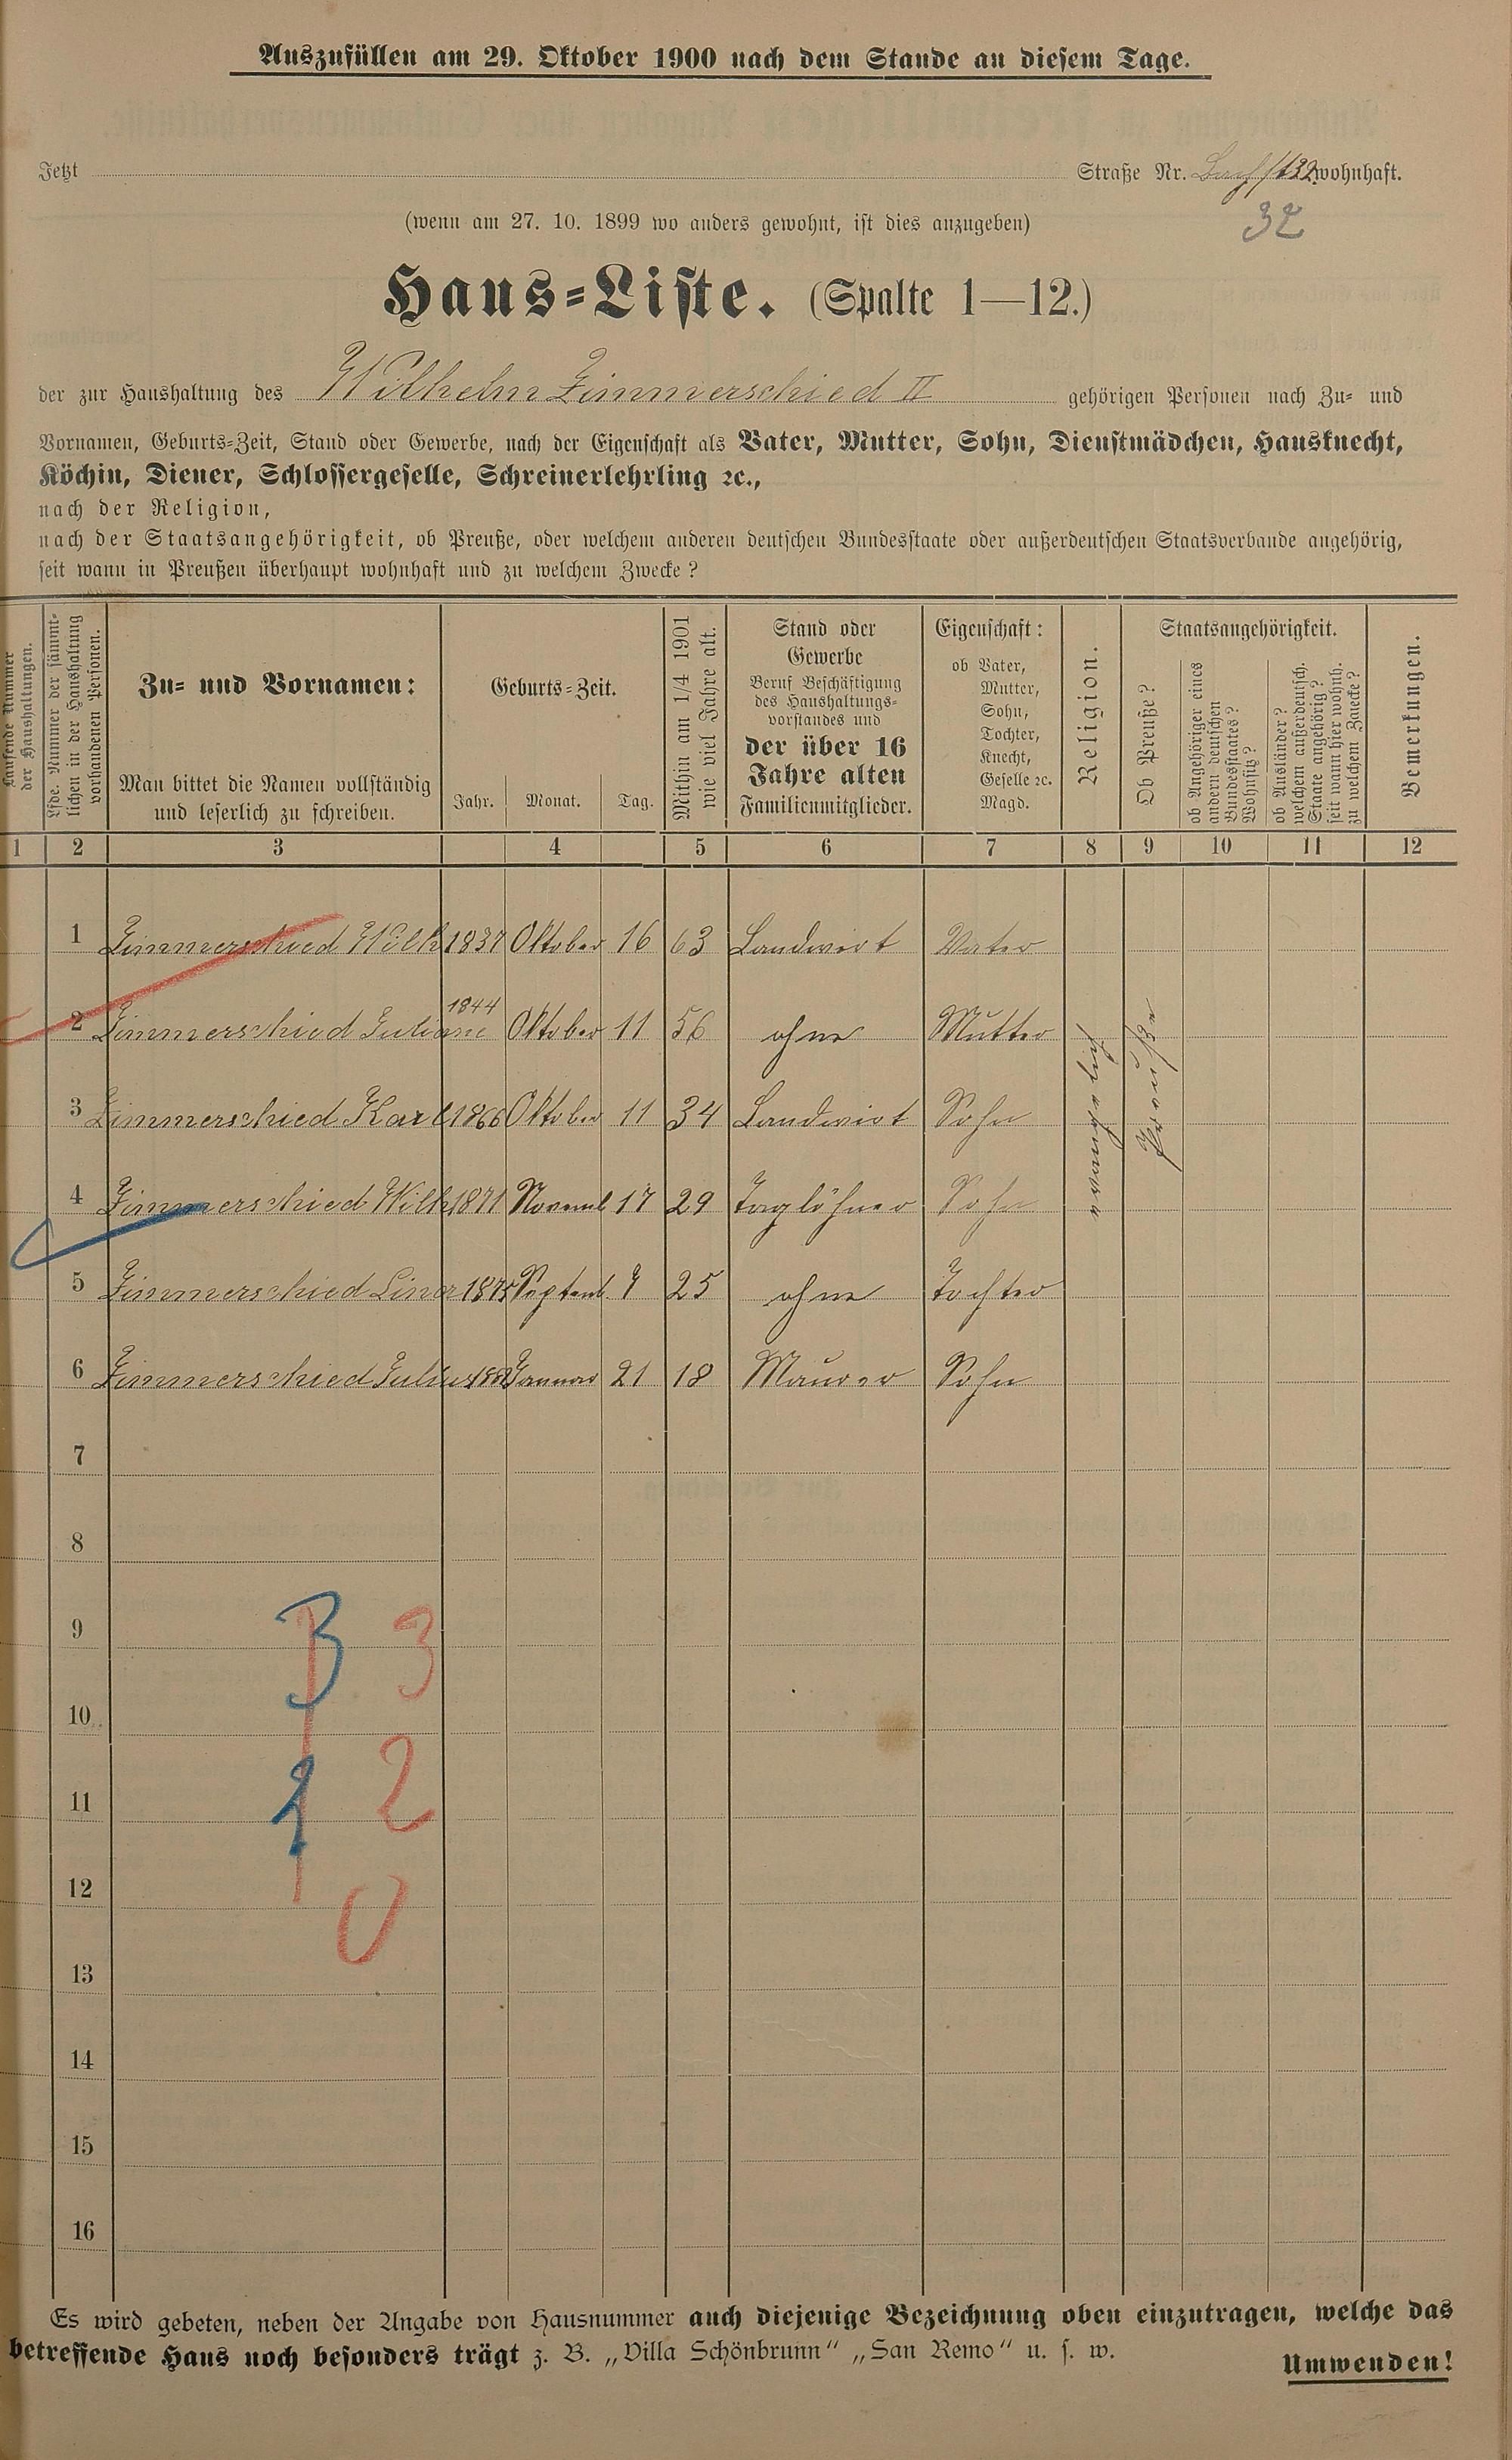 Auszufüllen am 29. Oktober 1900 nach dem Stande an diesem Tage.
Jetzt Straße Nr. 132 wohnhaft.
(wenn am 27. 10. 1899 wo anders gewohnt, ist dies anzugeben)
32
Haus-Liste. (Spalte 1—12.)
der zur Haushaltung des Wilhelm Zimmerschied II gehörigen Personen nach Zu- und
Vornamen, Geburts-Zeit, Stand oder Gewerbe, nach der Eigenschaft als Vater, Mutter, Sohn, Dienstmädchen, Hausknecht,
Köchin, Diener, Schlossergeselle, Schreinerlehrling ꝛc.,
nach der Religion,
nach der Staatsangehörigkeit, ob Preuße, oder welchem anderen deutschen Bundesstaate oder außerdeutschen Staatsverbande angehörig,
seit wann in Preußen überhaupt wohnhaft und zu welchem Zwecke?
Laufende Nummer
der Haushaltungen.
Lfde. Nummer der sämmt-
lichen in der Haushaltung
vorhandenen Personen.
Zu- und Vornamen:
Man bittet die Namen vollständig
und leserlich zu schreiben.
Geburts-Zeit.
Jahr. Monat. Tag.
Mithin am 1/4 1901
wie viel Jahre alt.
Stand oder
Gewerbe
Beruf Beschäftigung
des Haushaltungs-
vorstandes und
der über 16
Jahre alten
Familienmitglieder.
Eigenschaft:
ob Vater,
Mutter,
Sohn,
Tochter,
Knecht,
Geselle ꝛc.
Magd.
Religion.
Staatsangehörigkeit.
Ob Preuße?
ob Angehöriger eines
andern deutschen
Bundesstaates?
Wohnsitz?
ob Ausländer?
welchem außerdeutsch.
Staate angehörig?
seit wann hier wohnh.
zu welchem Zwecke?
Bemerkungen.
1 2 3 4 5 6 7 8 9 10 11 12
1 Zimmerschied Wilh 1837 Oktober 16 63 Landwirt Vater
2 Zimmerschied Juliane 1844 Oktober 11 56 ohne Mutter
3 Zimmerschied Karl 1866 Oktober 11 34 Landwirt Sohn
4 Zimmerschied Wilh 1871 Novemb 17 29 Taglöhner Sohn
5 Zimmerschied Lina 1875 Septemb. 7 25 ohne Tochter
6 Zimmerschied Julius 1882 Januar 21 18 Maurer Sohn
evangelisch
Preuße
7
8
9
10
11
12
13
14
15
16
B 3
1 2
0
Es wird gebeten, neben der Angabe von Hausnummer auch diejenige Bezeichnung oben einzutragen, welche das
betreffende Haus noch besonders trägt z. B. „Villa Schönbrunn“ „San Remo“ u. s. w.
Umwenden!